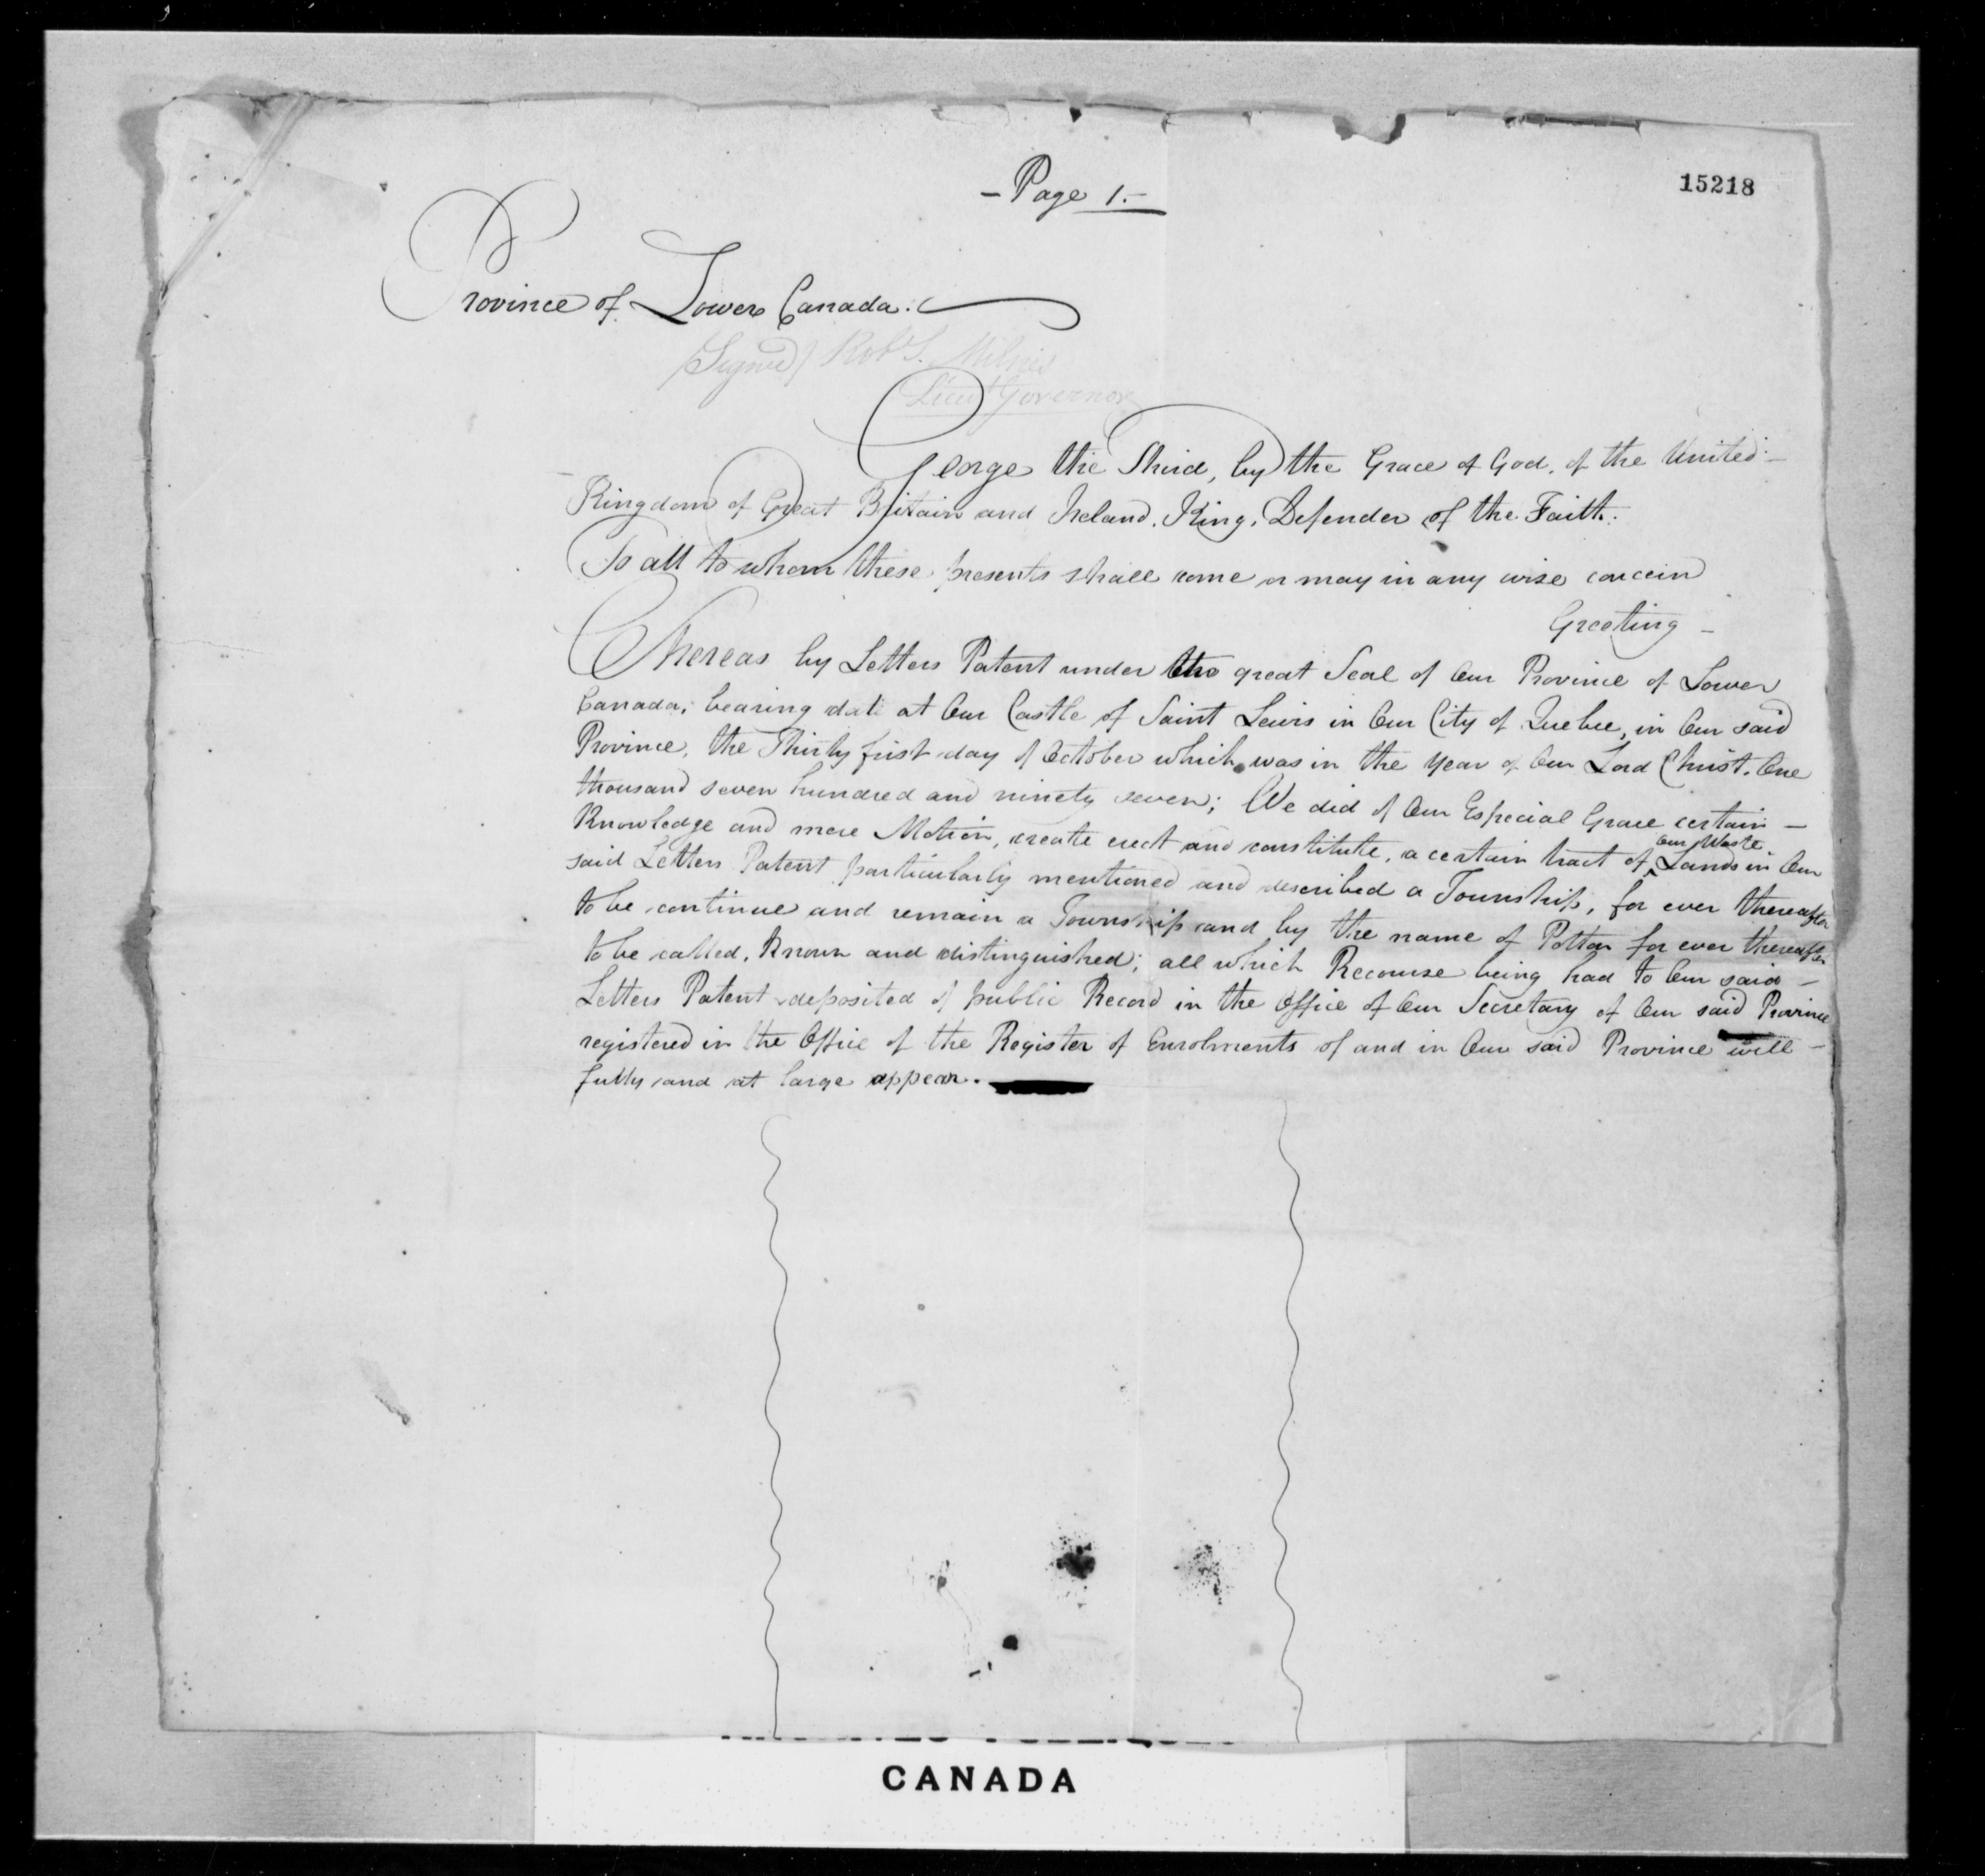 - Page 1. -
15218
Province of Lower Canada.
(Signed) Robt. S. Milnes
Lieut Governor
George the Third, by the Grace of God, of the United -
Kingdom of Great Britain and Ireland, King, Defender of the Faith.
To all to whom these presents shall come or may in any wise concern
Greeting -
Whereas by Letters Patent under the great Seal of Our Province of Lower
Canada, bearing date at Our Castle of Saint Lewis in Our City of Quebec, in Our said
Province, the Thirty first day of October which was in the year of Our Lord Christ, One
thousand seven hundred and ninety seven; We did of Our Especial Grace certain -
Knowledge and mere Motion, create erect and constitute, a certain tract of Our Waste Lands in Our
said Letters Patent particularly mentioned and described a Township, for ever thereafter
to be continue and remain a Township and by the name of Potton for ever thereafter
to be called, known and distinguished; all which Recourse being had to Our said -
Letters Patent deposited of public Record in the Office of Our Secretary of Our said Province
registered in the Office of the Register of Enrolments of and in Our said Province will -
fully and at large appear.
CANADA